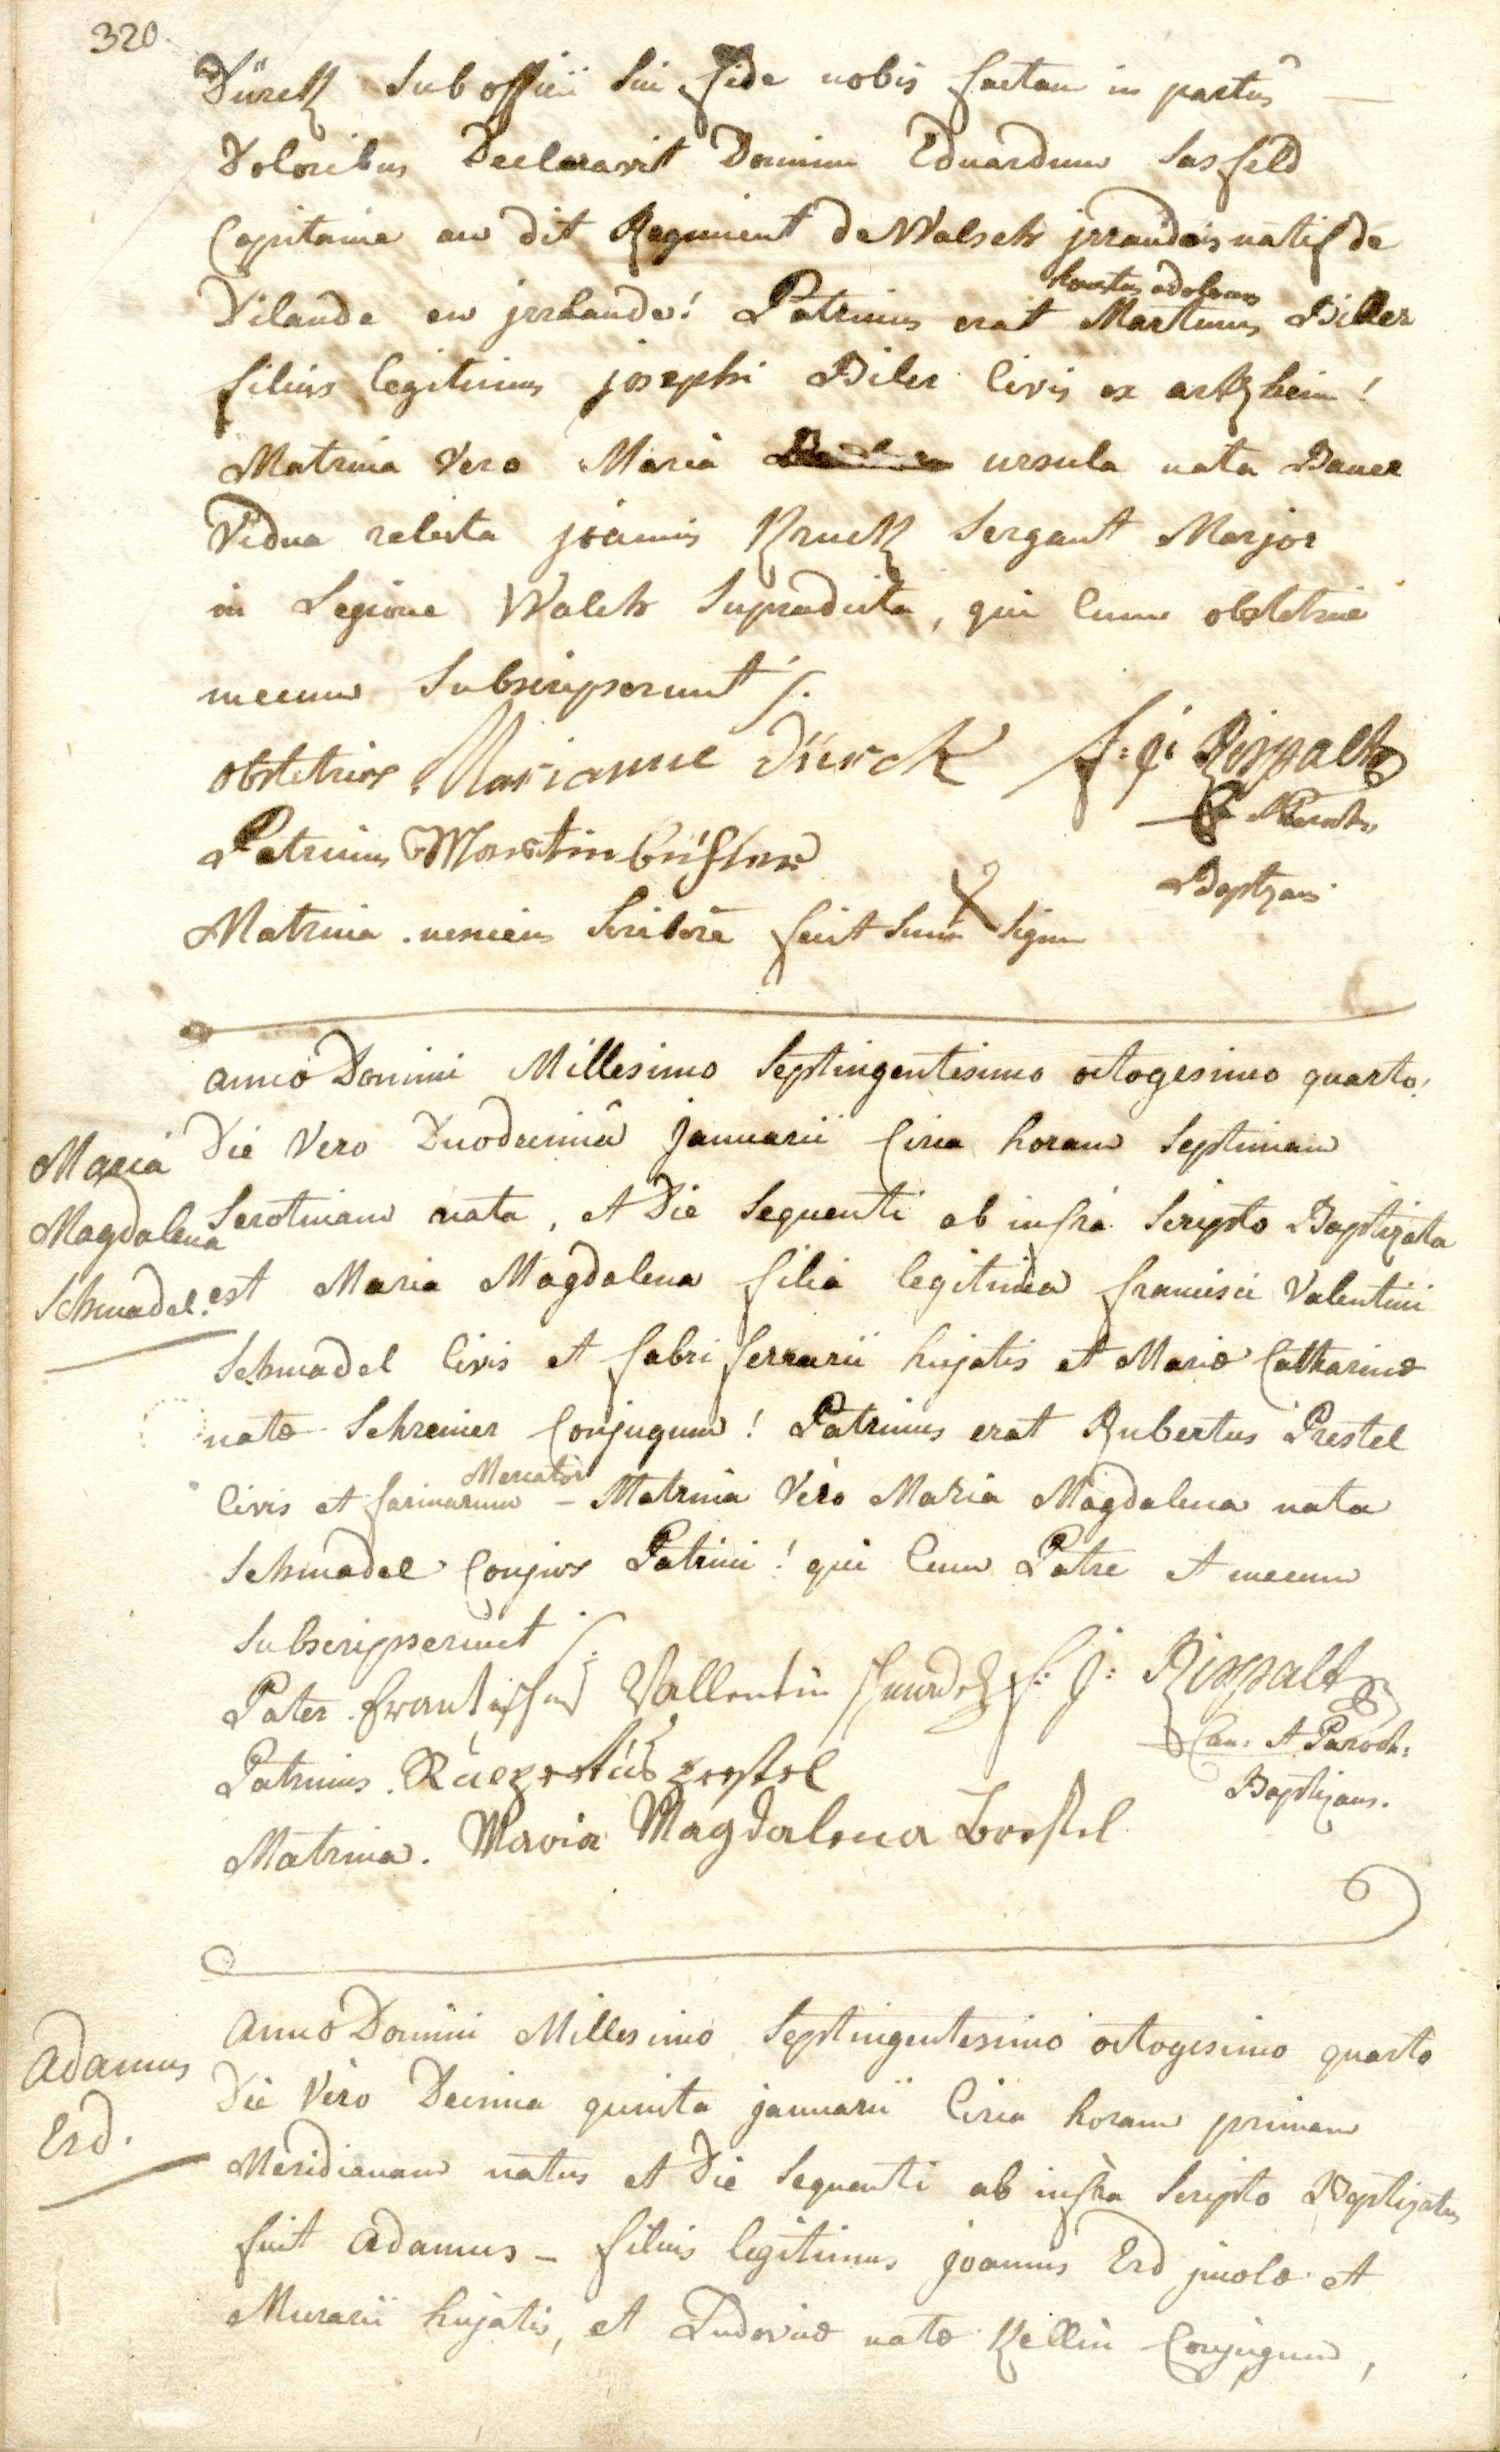 320.
Dürck Sub officii Sui fide nobis factam in partûs
Doloribus Declaravit Dominum Eduardum Sasfeld
Capitaine au dit Regiment de Walsch jrrandois natif de
Dilande en jrrlande! Patrinus erat Martinus Biller
honestus adolescens
filius legitimus josephi Biler Civis ex artzheim!
Matrina Vero Maria ursula nata Bauer
Vidua relicta joannis Kruck Sergant Marjor
in Legione Walch Supradicta, qui Cum obstetrice
mecum Subscripserunt
obstetrix Marianne Dürck F: J: Rispalt
Patrinus Martin Parochus
Baptizans
Matrina nesciens Scribere fecit Suum X Signum
anno Domini Millesimo Septingentesimo octogesimo quarto!
Die Vero Duodecimâ januarii Circa horam Septimam
Maria
Magdalena
Schmadel.
Serotinam nata, et Die Sequenti ab infra Scripto Baptizata
est Maria Magdalena filia legitima francisci Valentini
Schmadel Civis et fabri ferrarii hujatis et Mariæ Catharinæ
natæ Schreiner Conjugum! Patrinus erat Rubertus Prestel
Civis et farinarum Mercator - Matrina Vero Maria Magdalena nata
Schmadel Conjux Patrini! qui Cum Patre et mecum
Subscripserunt
Pater Vallentin F: J: Rispalt
Can: et Paroch:
Patrinus
Baptizans.
Matrina. Maria Magdalena
anno Domini Millesimo Septingentesimo octogesimo quarto
Adamus
Erd.
Die Vero Decima quinta januarii Circa horam primam
Meridianam natus et Die Sequenti ab infra Scripto Baptizatus
fuit adamus - filius legitimus joannis Erd jncolæ et
Murarii hujatis, et Ludovicæ natæ Kellin Conjugum,